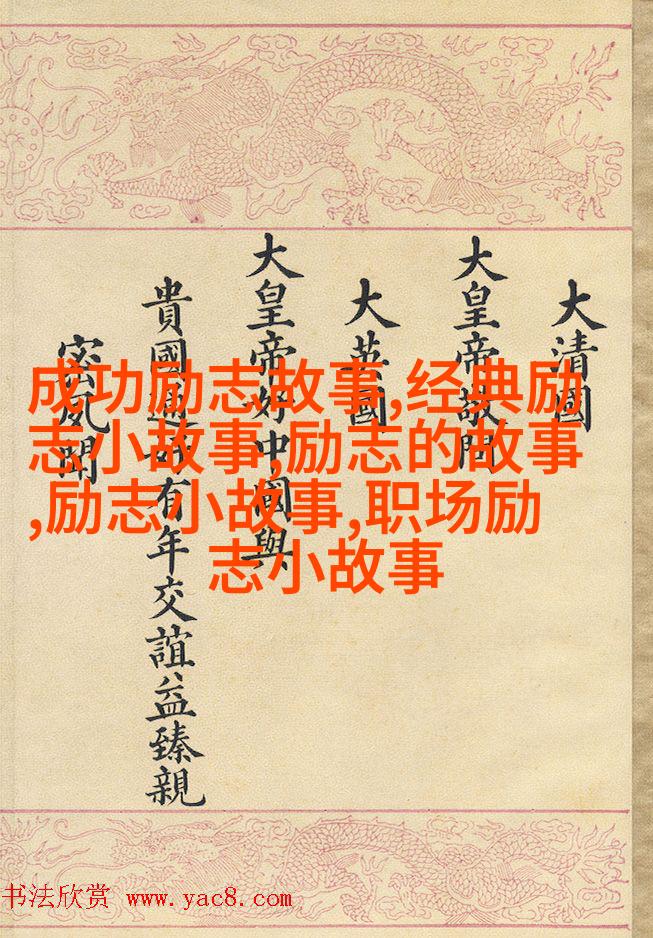 大清國
大皇帝敬問
大英國
大皇帝好中國與
貴國通好有年交誼益臻親
密夙聞
成功励志故事,经典励
志小故事,励志的故事
,励志小故事,职场励
志小故事
书法欣赏 www.yac8.com